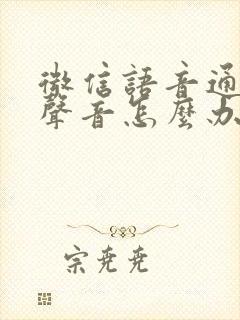 微信語音通
聲音怎麼办
宗尭尭